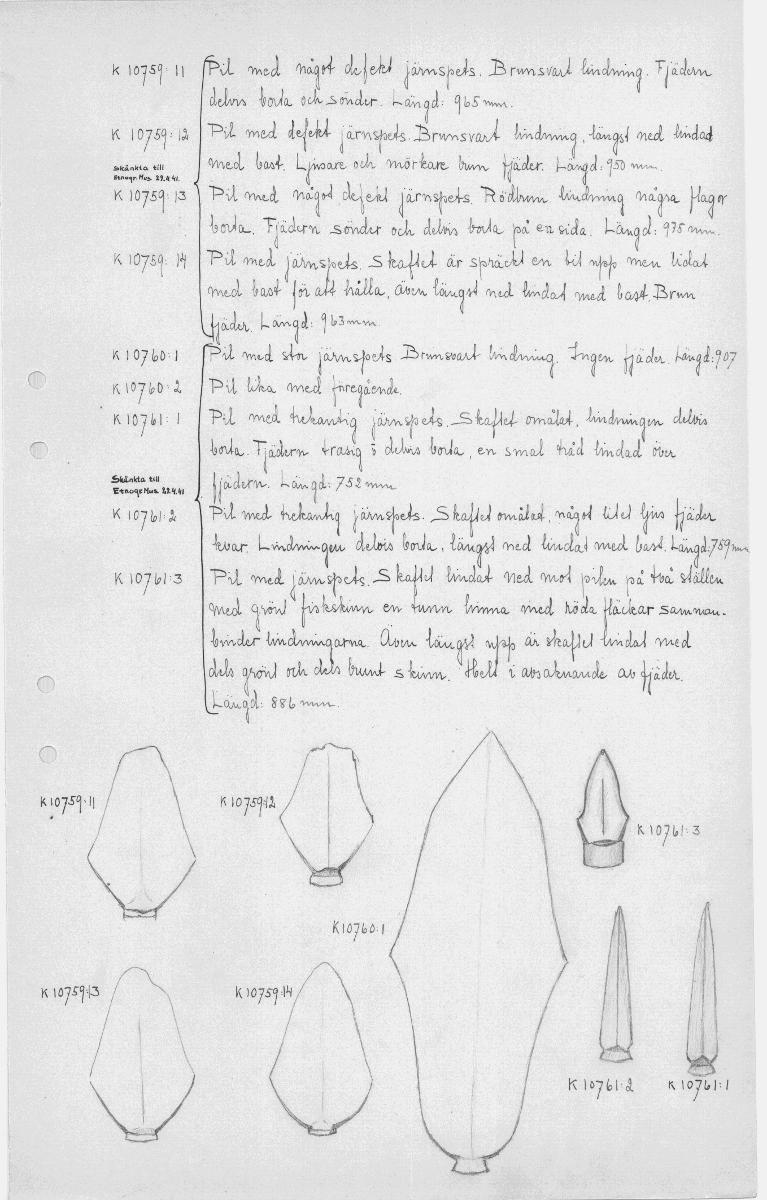 K 10759:11 Pil med något defekt järnspets. Brunsvart lindning. Fjädern
delvis borta och sönder. Längd: 965 mm.
K 10759:12 Pil med defekt järnspets. Brunsvart lindning, längst ned lindad
skänkta till
Etnogr. Mus. 22.4.41.
med bast. Ljusare och mörkare brun fjäder. Längd: 950 mm.
K 10759:13 Pil med något defekt järnspets. Rödbrun lindning några flagor
borta. Fjädern sönder och delvis borta på ena sida. Längd: 975 mm.
K 10759:14 Pil med järnspets. Skaftet är spräckt en bit upp men lidat
med bast för att hålla, även längst ned lindat med bast. Brun
fjäder. Längd: 963 mm.
K 10760:1 Pil med stor järnspets Brunsvart lindning. Ingen fjäder. Längd: 907
K 10760:2 Pil lika med föregående.
K 10761:1 Pil med trekantig järnspets. Skaftet omålat, lindningen delvis
borta. Fjädern trasig o delvis borta, en smal tråd lindad över
Skänkta till
Etnogr Mus. 22.4.41
fjädern. Längd: 752 mm
K 10761:2 Pil med trekantig järnspets. Skaftet omålat, något litet ljus fjäder
kvar. Lindningen delvis borta, längst ned lindat med bast. Längd: 759 mm
K 10761:3 Pil med järnspets. Skaftet lindat ned mot pilen på två ställen
med grönt fiskskinn en tunn hinna med röda fläckar samman-
binder lindningarna. Även längst upp är skaftet lindat med
dels grönt och dels brunt skinn. Helt i avsaknande av fjäder.
Längd: 886 mm.
K 10759:11
K 10759:12
K 10761:3
K 10760:1
K 10759:13
K 10759:14
K 10761:2
K 10761:1